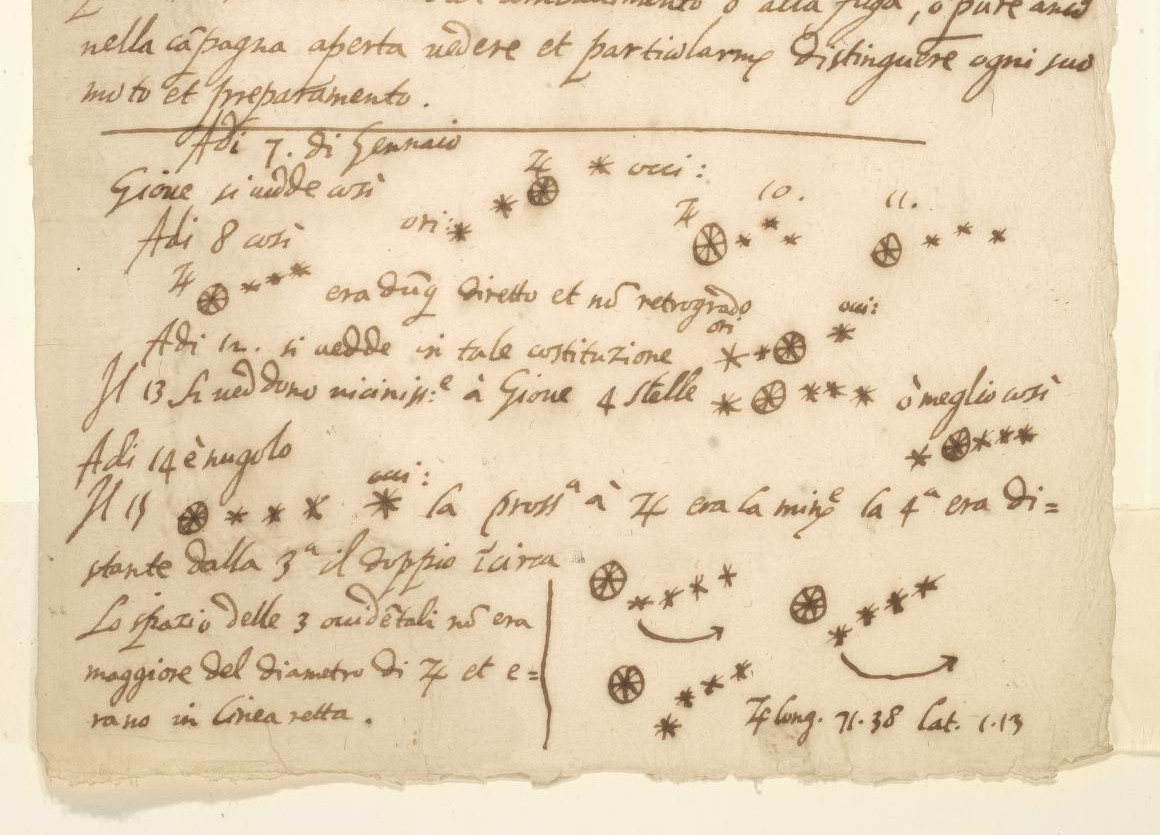 alla fuga, o pure anco
nella cãpagna aperta vedere et particolarm.e distinguere ogni suo
moto et preparamento.
Adi 7. di Gennaio
Gioue si vedde così ♃ occi:
ori:
Adi 8 così ♃ 10. 11.
♃ era dũq diretto et nõ retrogrado
Adi 12. si vedde in tale costituzione ori occi:
Il 13 si veddono viciniss:e à Gioue 4 stelle ò meglio così
Adi 14 è nugolo
Il 15 occi: la pross.a à ♃ era la min.e la 4.a era di=
stante dalla 3.a il doppio ĩcirca
Lo spazio delle 3 occidẽtali nõ era
maggiore del diametro di ♃ et e=
rano in linea retta.
♃ long. 71.38 lat. 1.13